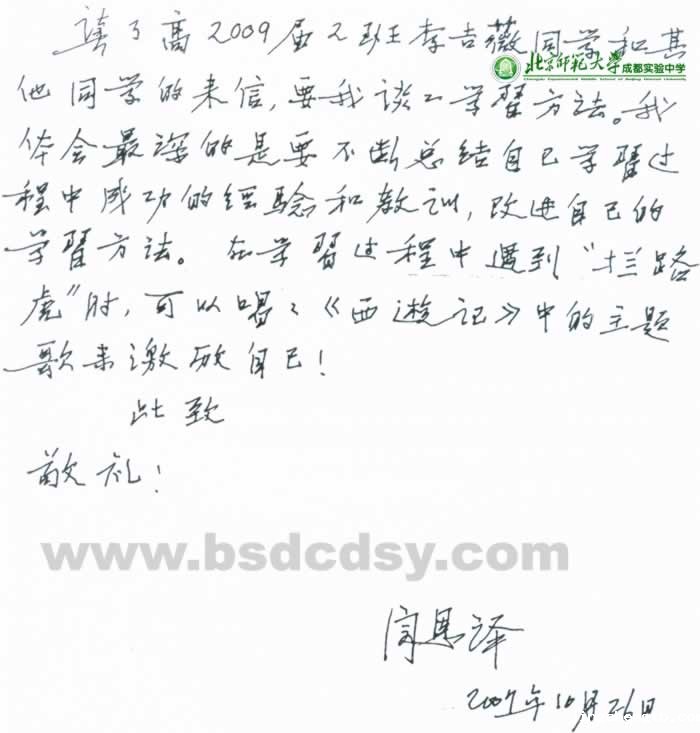 读了高2009届2班李吉薇同学和其
北京师范大学成都实验中学
他同学的来信,要我谈谈学習方法。我
体会最深的是要不断总结自己学習过
程中成功的经驗和教训,改进自己的
学習方法。在学習过程中遇到“拦路
虎”时,可以唱唱《西遊记》中的主题
歌来激励自己!
此致
敬礼!
www.bsdcdsy.com
闫恩泽
2007年10月26日